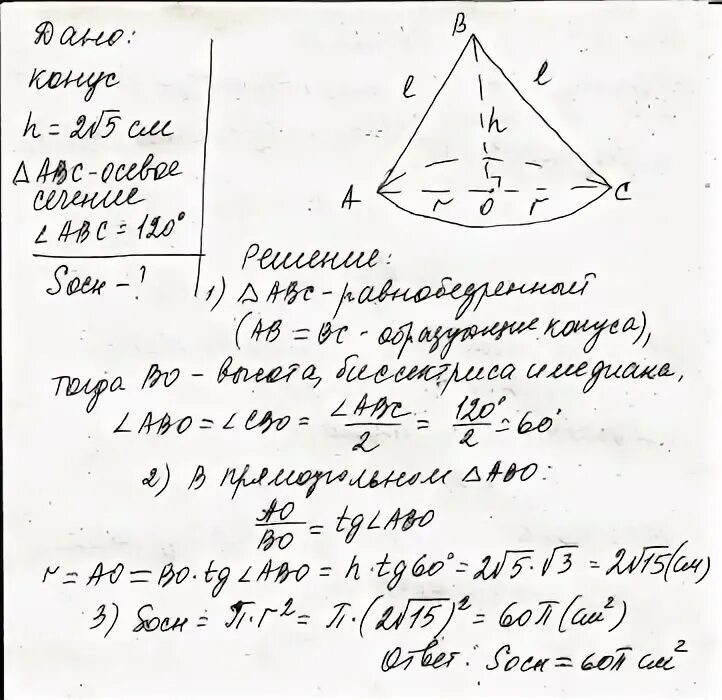 Дано:
конус
h = 2√5 см
△ABC - осевое
сечение
∠ABC = 120°
Sосн - ?
B
l
l
h
A
r
O
r
C
Решение:
1) △ABC - равнобедренный
(AB = BC - образующие конуса),
тогда BO - высота, биссектриса и медиана,
∠ABO = ∠CBO = ∠ABC/2 = 120°/2 = 60°
2) В прямоугольном △ABO:
AO/BO = tg∠ABO
r = AO = BO·tg∠ABO = h·tg60° = 2√5·√3 = 2√15 (см)
3) Sосн = π·r² = π·(2√15)² = 60π (см²)
Ответ: Sосн = 60π см²